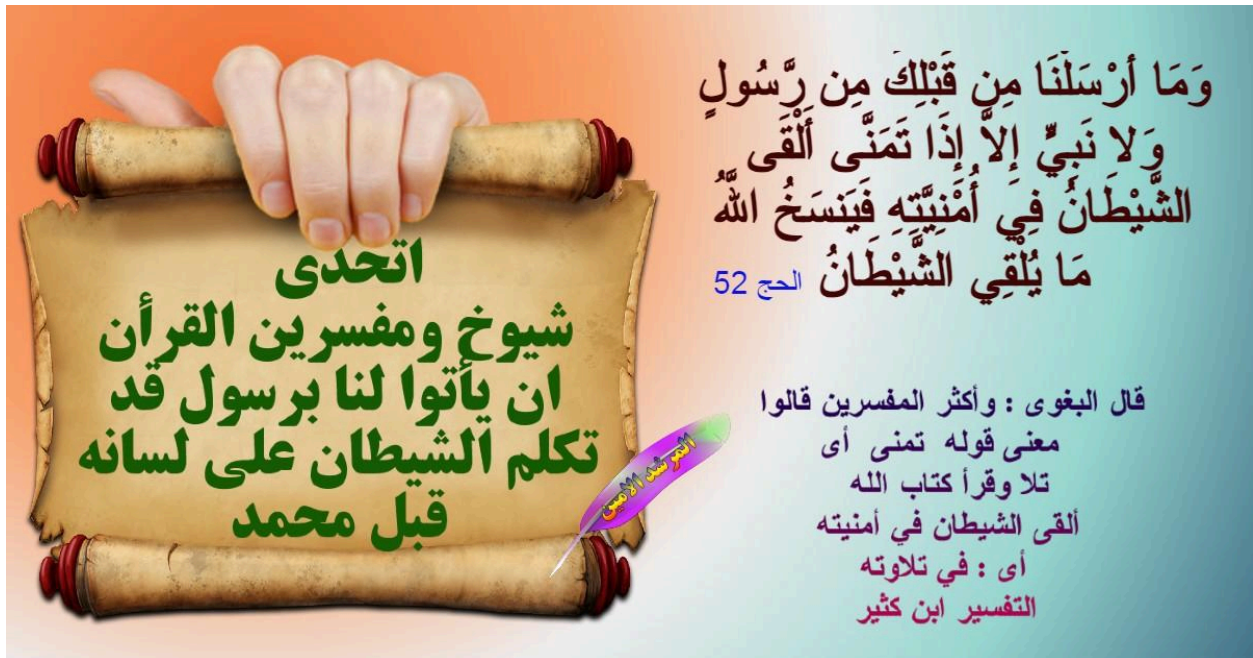 وَمَا أَرْسَلْنَا مِن قَبْلِكَ مِن رَّسُولٍ
وَلا نَبِيٍّ إِلاَّ إِذَا تَمَنَّى أَلْقَى
الشَّيْطَانُ فِي أُمْنِيَّتِهِ فَيَنسَخُ اللَّهُ
مَا يُلْقِي الشَّيْطَانُ الحج 52
قال البغوى : وأكثر المفسرين قالوا
معنى قوله تمنى أى
تلا وقرأ كتاب الله
ألقى الشيطان في أمنيته
أى : في تلاوته
التفسير ابن كثير
اتحدى
شيوخ ومفسرين القرأن
ان يأتوا لنا برسول قد
تكلم الشيطان على لسانه
قبل محمد
المرشد الامين